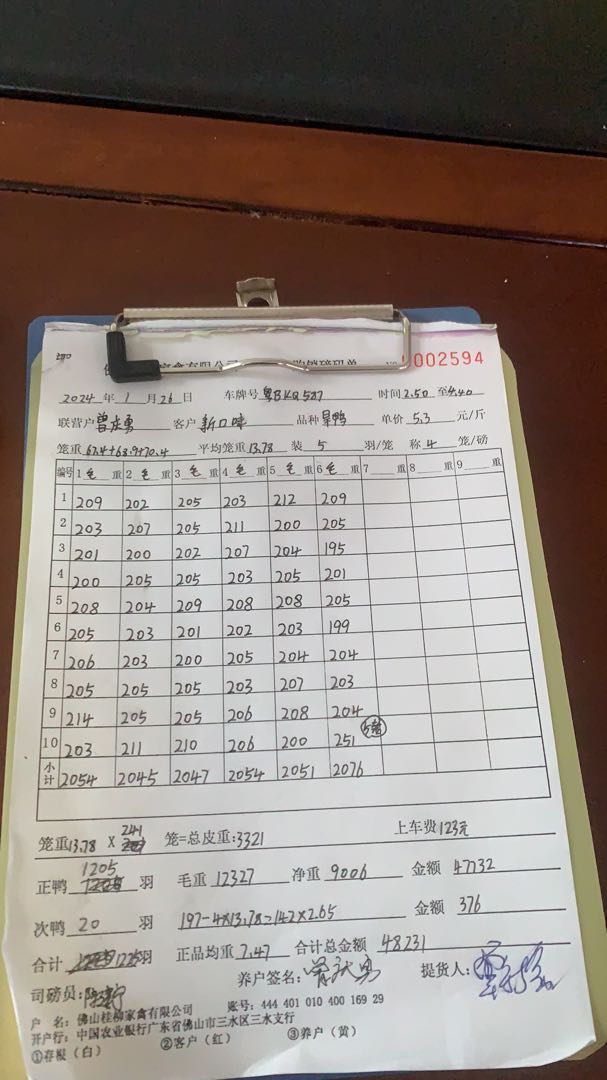 禽有限公司 购销磅码单 No 0002594
2024 年 1 月 26 日 车牌号 粤BKQ587 时间 2.50 至 4.40
联营户 曾 勇 客户 新口味 品种 单价 5.3 元/斤
笼重 67.4+68.9+70.4 平均笼重 13.78 装 5 羽/笼 称 4 笼/磅
编号 1 毛 重 2 毛 重 3 毛 重 4 毛 重 5 毛 重 6 毛 重 7 重 8 重 9 重
1 209 202 205 203 212 209
2 203 207 205 211 200 205
3 201 200 202 207 204 195
4 200 205 205 203 205 201
5 208 204 209 208 208 205
6 205 203 201 202 203 199
7 206 203 200 205 204 204
8 205 205 205 203 207 203
9 214 205 205 206 208 204
10 203 211 210 206 200 251
小计 2054 2045 2047 2054 2051 2076
笼重 13.78 X 241 笼=总皮重: 3321 上车费 123元
正鸭 1205 羽 毛重 12327 净重 9006 金额 47732
次鸭 20 羽 197-4×13.78=142×2.65 金额 376
合计 1225 羽 正品均重 7.47 合计总金额 48231
司磅员: 养户签名: 曾 勇 提货人:
户 名: 佛山桂柳家禽有限公司 账号: 444 401 010 400 169 29
开户行: 中国农业银行广东省佛山市三水区三水支行
①存根（白） ②客户（红） ③养户（黄）